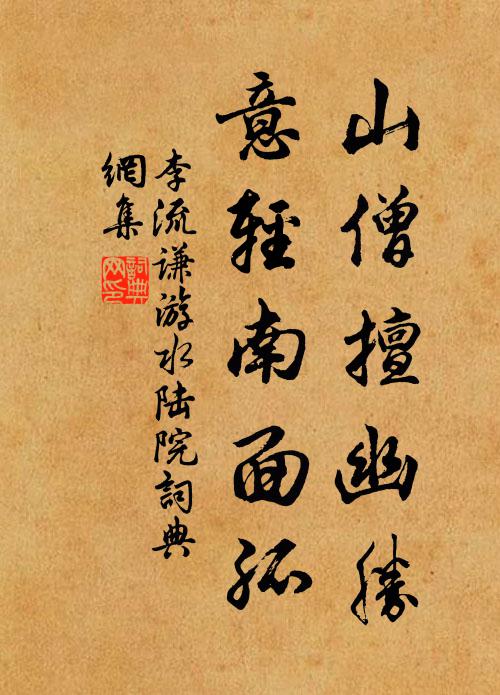 山僧擅幽勝
意輕南面孤
李流谦游水陆院詞典
網集
詞典
网印